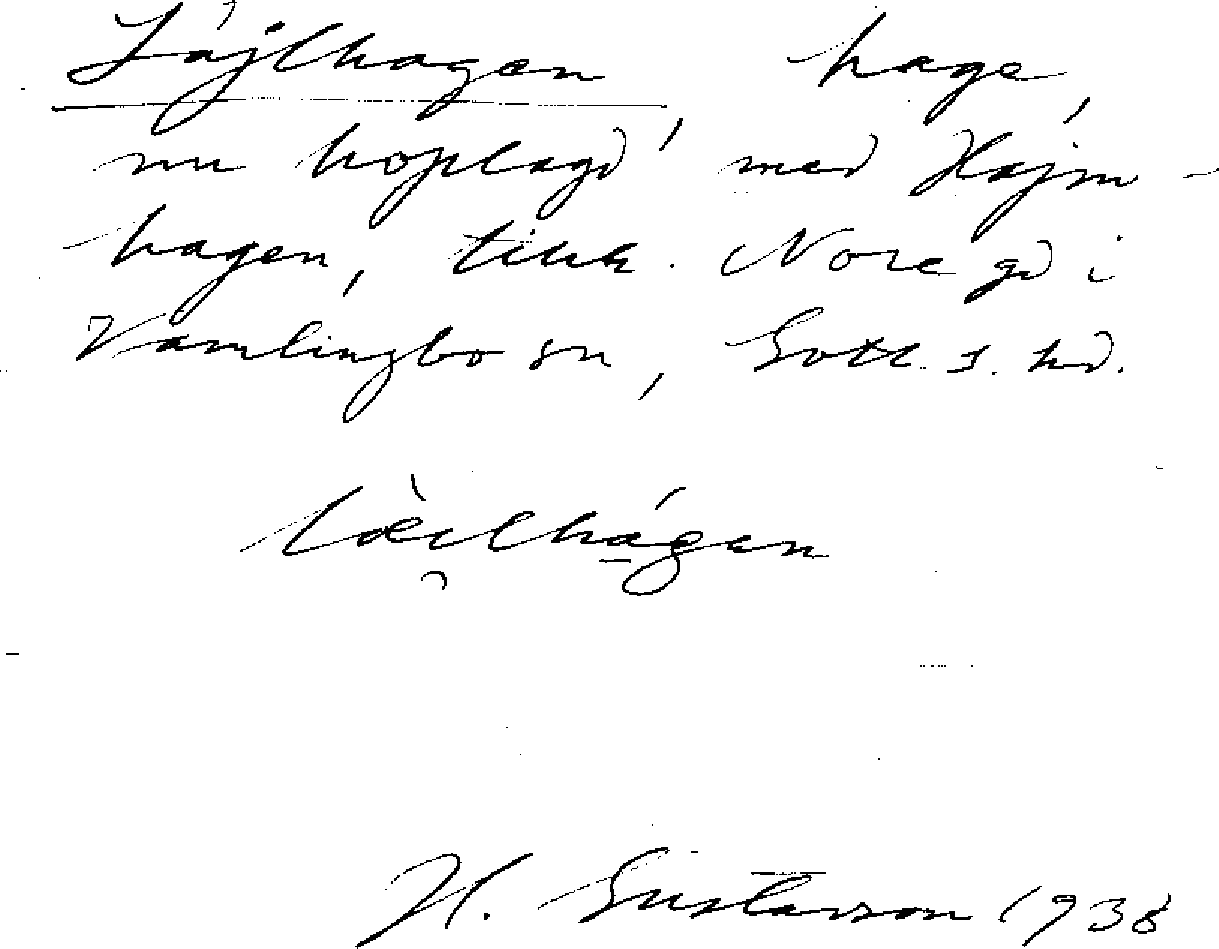 Läjlhagen, hage,
nu hoplagd med Hajm-
hagen, tillh. Nore gd i
Vamlingbo sn, Gotl. s. hd.
læ̀i̯lhá̱gen
H. Gustavson 1938